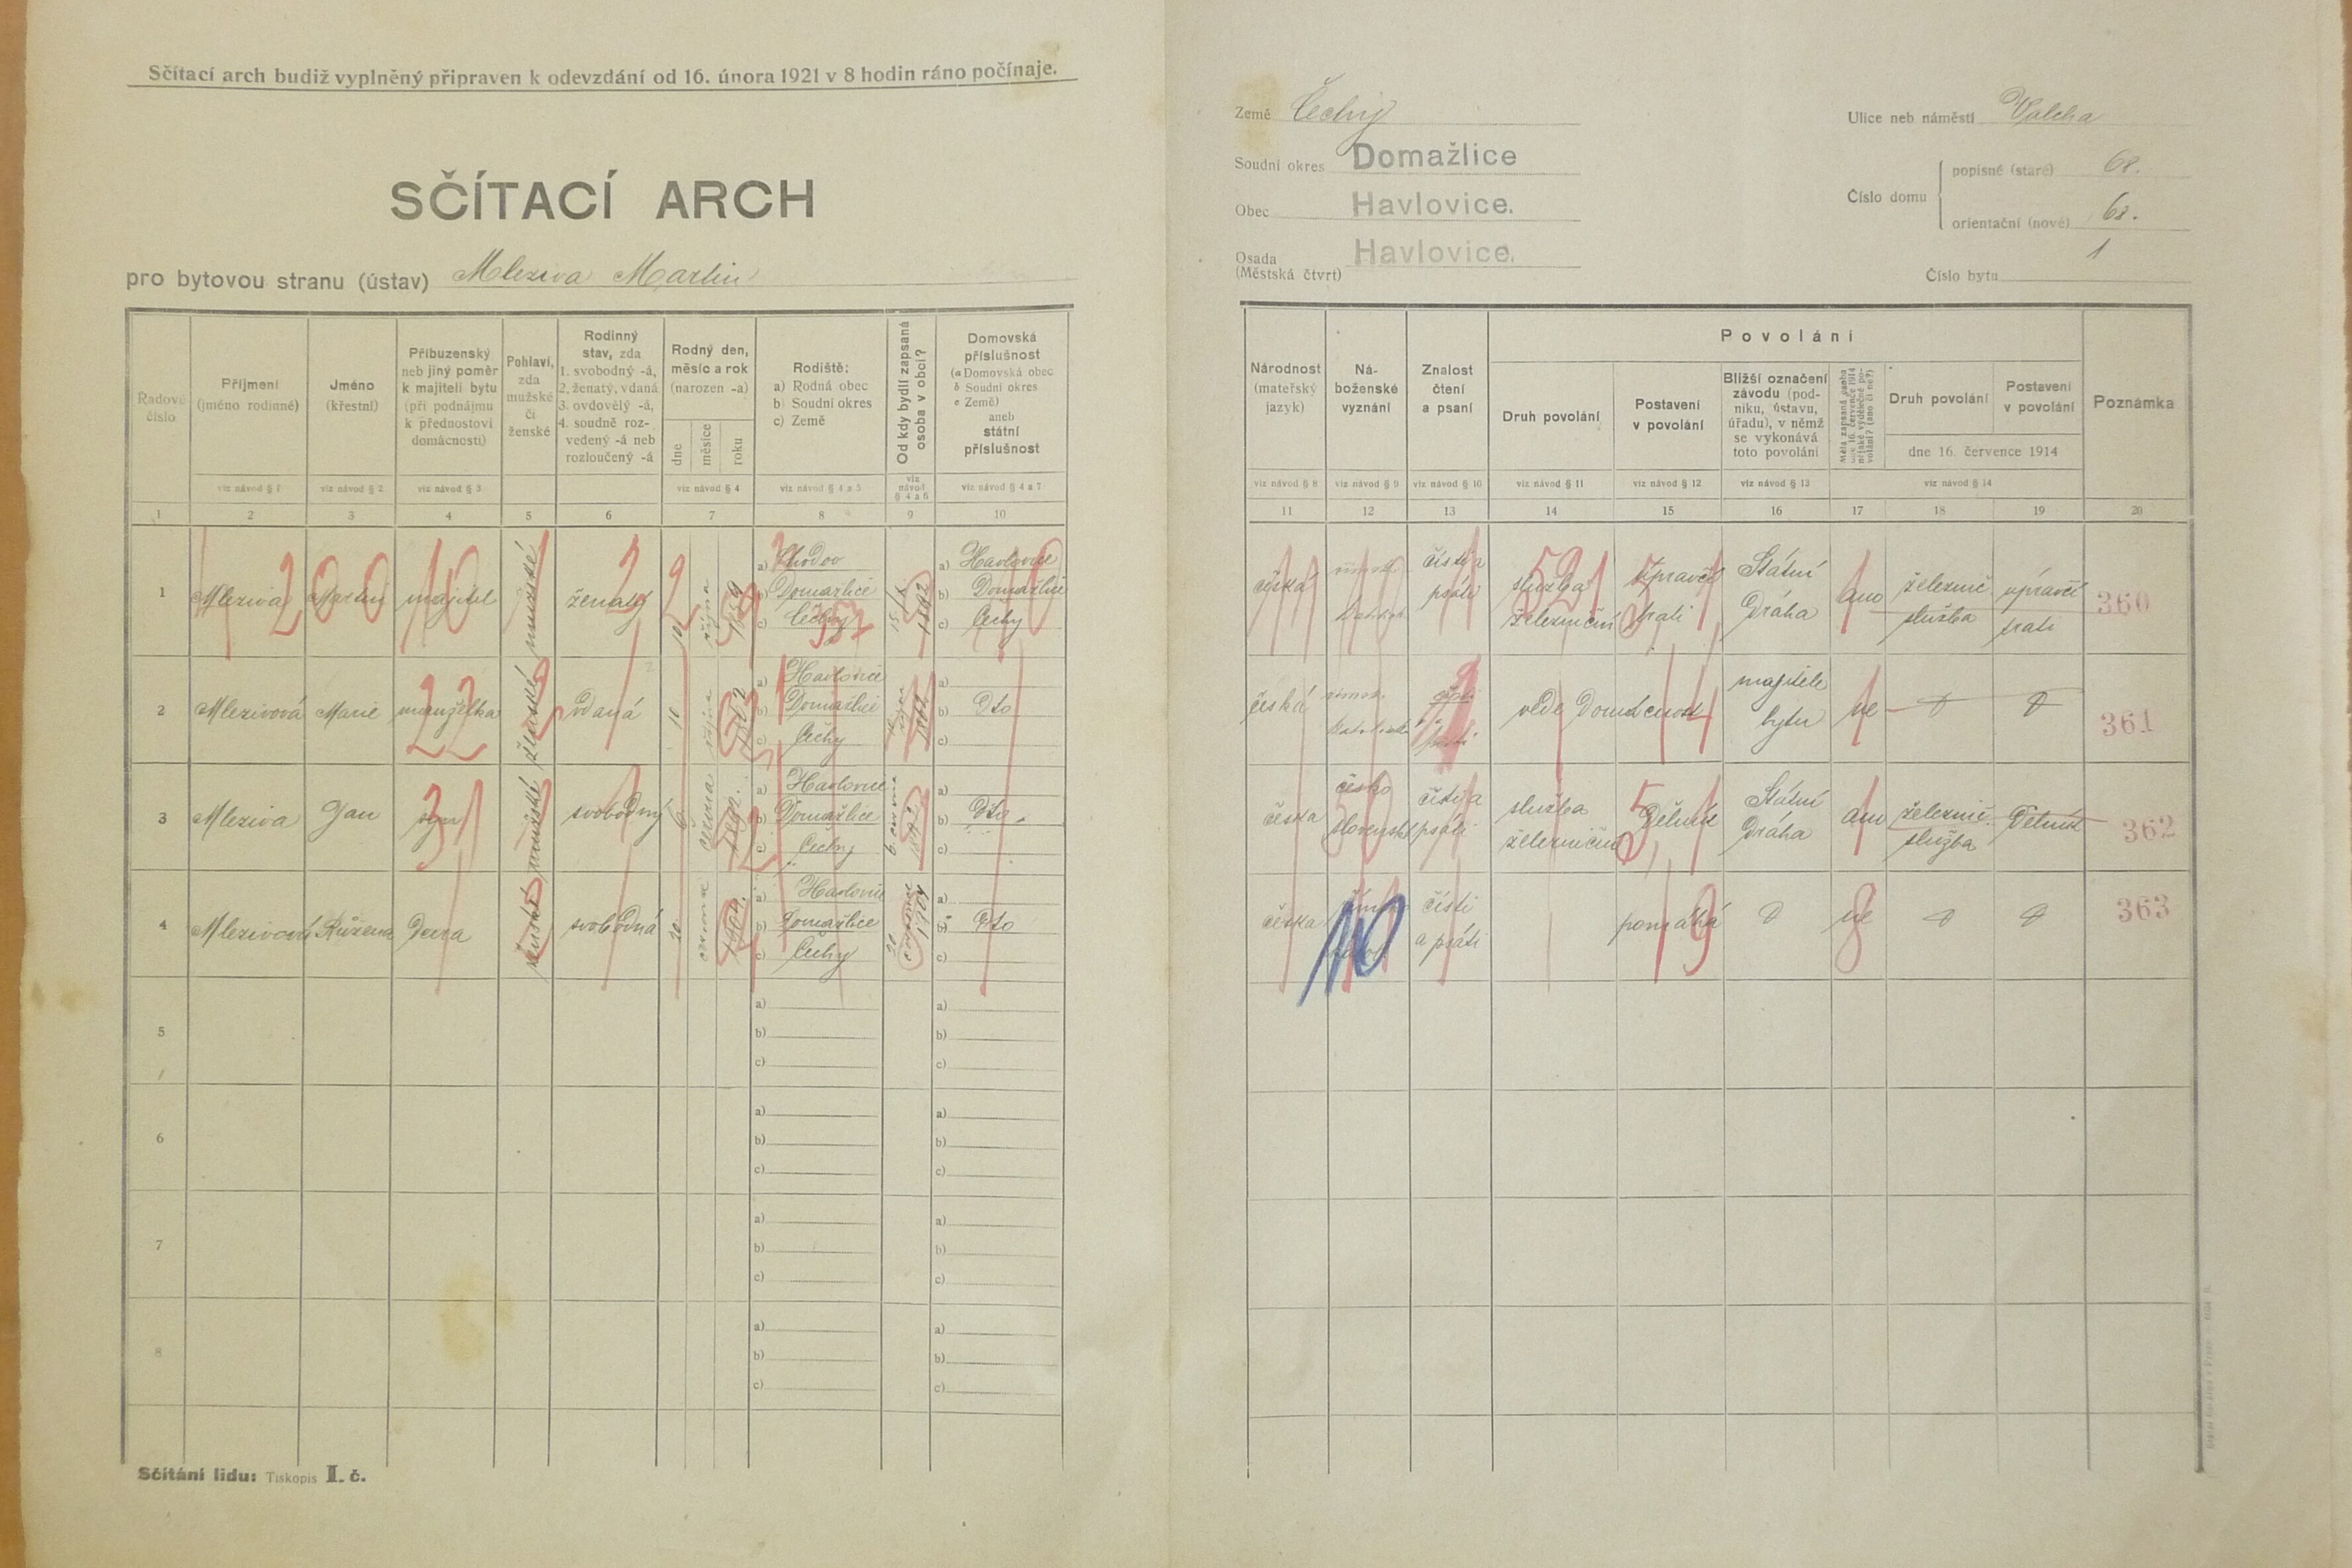 Sčítací arch budiž vyplněný připraven k odevzdání od 16. února 1921 v 8 hodin ráno počínaje.
SČÍTACÍ ARCH
pro bytovou stranu (ústav) Mleziva Martin
Země Čechy
Soudní okres Domažlice
Obec Havlovice.
Osada Havlovice.
(Městská čtvrt)
Ulice neb náměstí
Číslo domu
popisné (staré) 68.
orientační (nové) 68.
Číslo bytu 1
Řadové číslo
Příjmení (jméno rodinné)
Jméno (křestní)
Příbuzenský neb jiný poměr k majiteli bytu (při podnájmu k přednostovi domácnosti)
Pohlaví, zda mužské či ženské
Rodinný stav, zda 1. svobodný -á, 2. ženatý, vdaná 3. ovdovělý -á, 4. soudně rozvedený -á neb rozloučený -á
Rodný den, měsíc a rok (narozen -a)
dne měsíce roku
Rodiště: a) Rodná obec b) Soudní okres c) Země
Od kdy bydlí zapsaná osoba v obci?
Domovská příslušnost (a Domovská obec b Soudní okres c Země) aneb státní příslušnost
viz návod § 1 viz návod § 2 viz návod § 3 viz návod § 4 viz návod § 4 a 5 viz návod § 4 a 6 viz návod § 4 a 7
1 2 3 4 5 6 7 8 9 10
Národnost (mateřský jazyk)
Náboženské vyznání
Znalost čtení a psaní
Povolání
Druh povolání
Postavení v povolání
Bližší označení závodu (podniku, ústavu, úřadu), v němž se vykonává toto povolání
Druh povolání
Postavení v povolání
dne 16. července 1914
Poznámka
viz návod § 8 viz návod § 9 viz návod § 10 viz návod § 11 viz návod § 12 viz návod § 13 viz návod § 14
11 12 13 14 15 16 17 18 19 20
1 Mleziva Martin majitel mužské ženatý 10 října
a) Chodov
b) Domažlice
c) Čechy
a) Havlovice
b) Domažlice
c) Čechy
česká
čísti a psáti
služba železniční
Státní Dráha
ano
služba
360
2 Mlezivová Marie manželka ženské vdaná 10
a) Havlovice
b) Domažlice
c) Čechy
a)
b) dto
c)
česká
vede Domácnost
majitele bytu
ne
361
3 Mleziva Jan syn mužské svobodný 6. června
a) Havlovice
b) Domažlice
c) Čechy
a)
b) dto.
c)
česka
česko
čísti a psáti
služba železniční
Dělník
Státní Dráha
ano
služba
Dělník
362
4 Mlezivová Růžena Dcera ženské svobodná 20
a) Havlovice
b) Domažlice
c) Čechy
a)
b) dto
c)
česka
10
čísti a psáti
pomáhá
ne
363
5 a) b) c) a) b) c)
6 a) b) c) a) b) c)
7 a) b) c) a) b) c)
8 a) b) c) a) b) c)
Sčítání lidu: Tiskopis I. č.